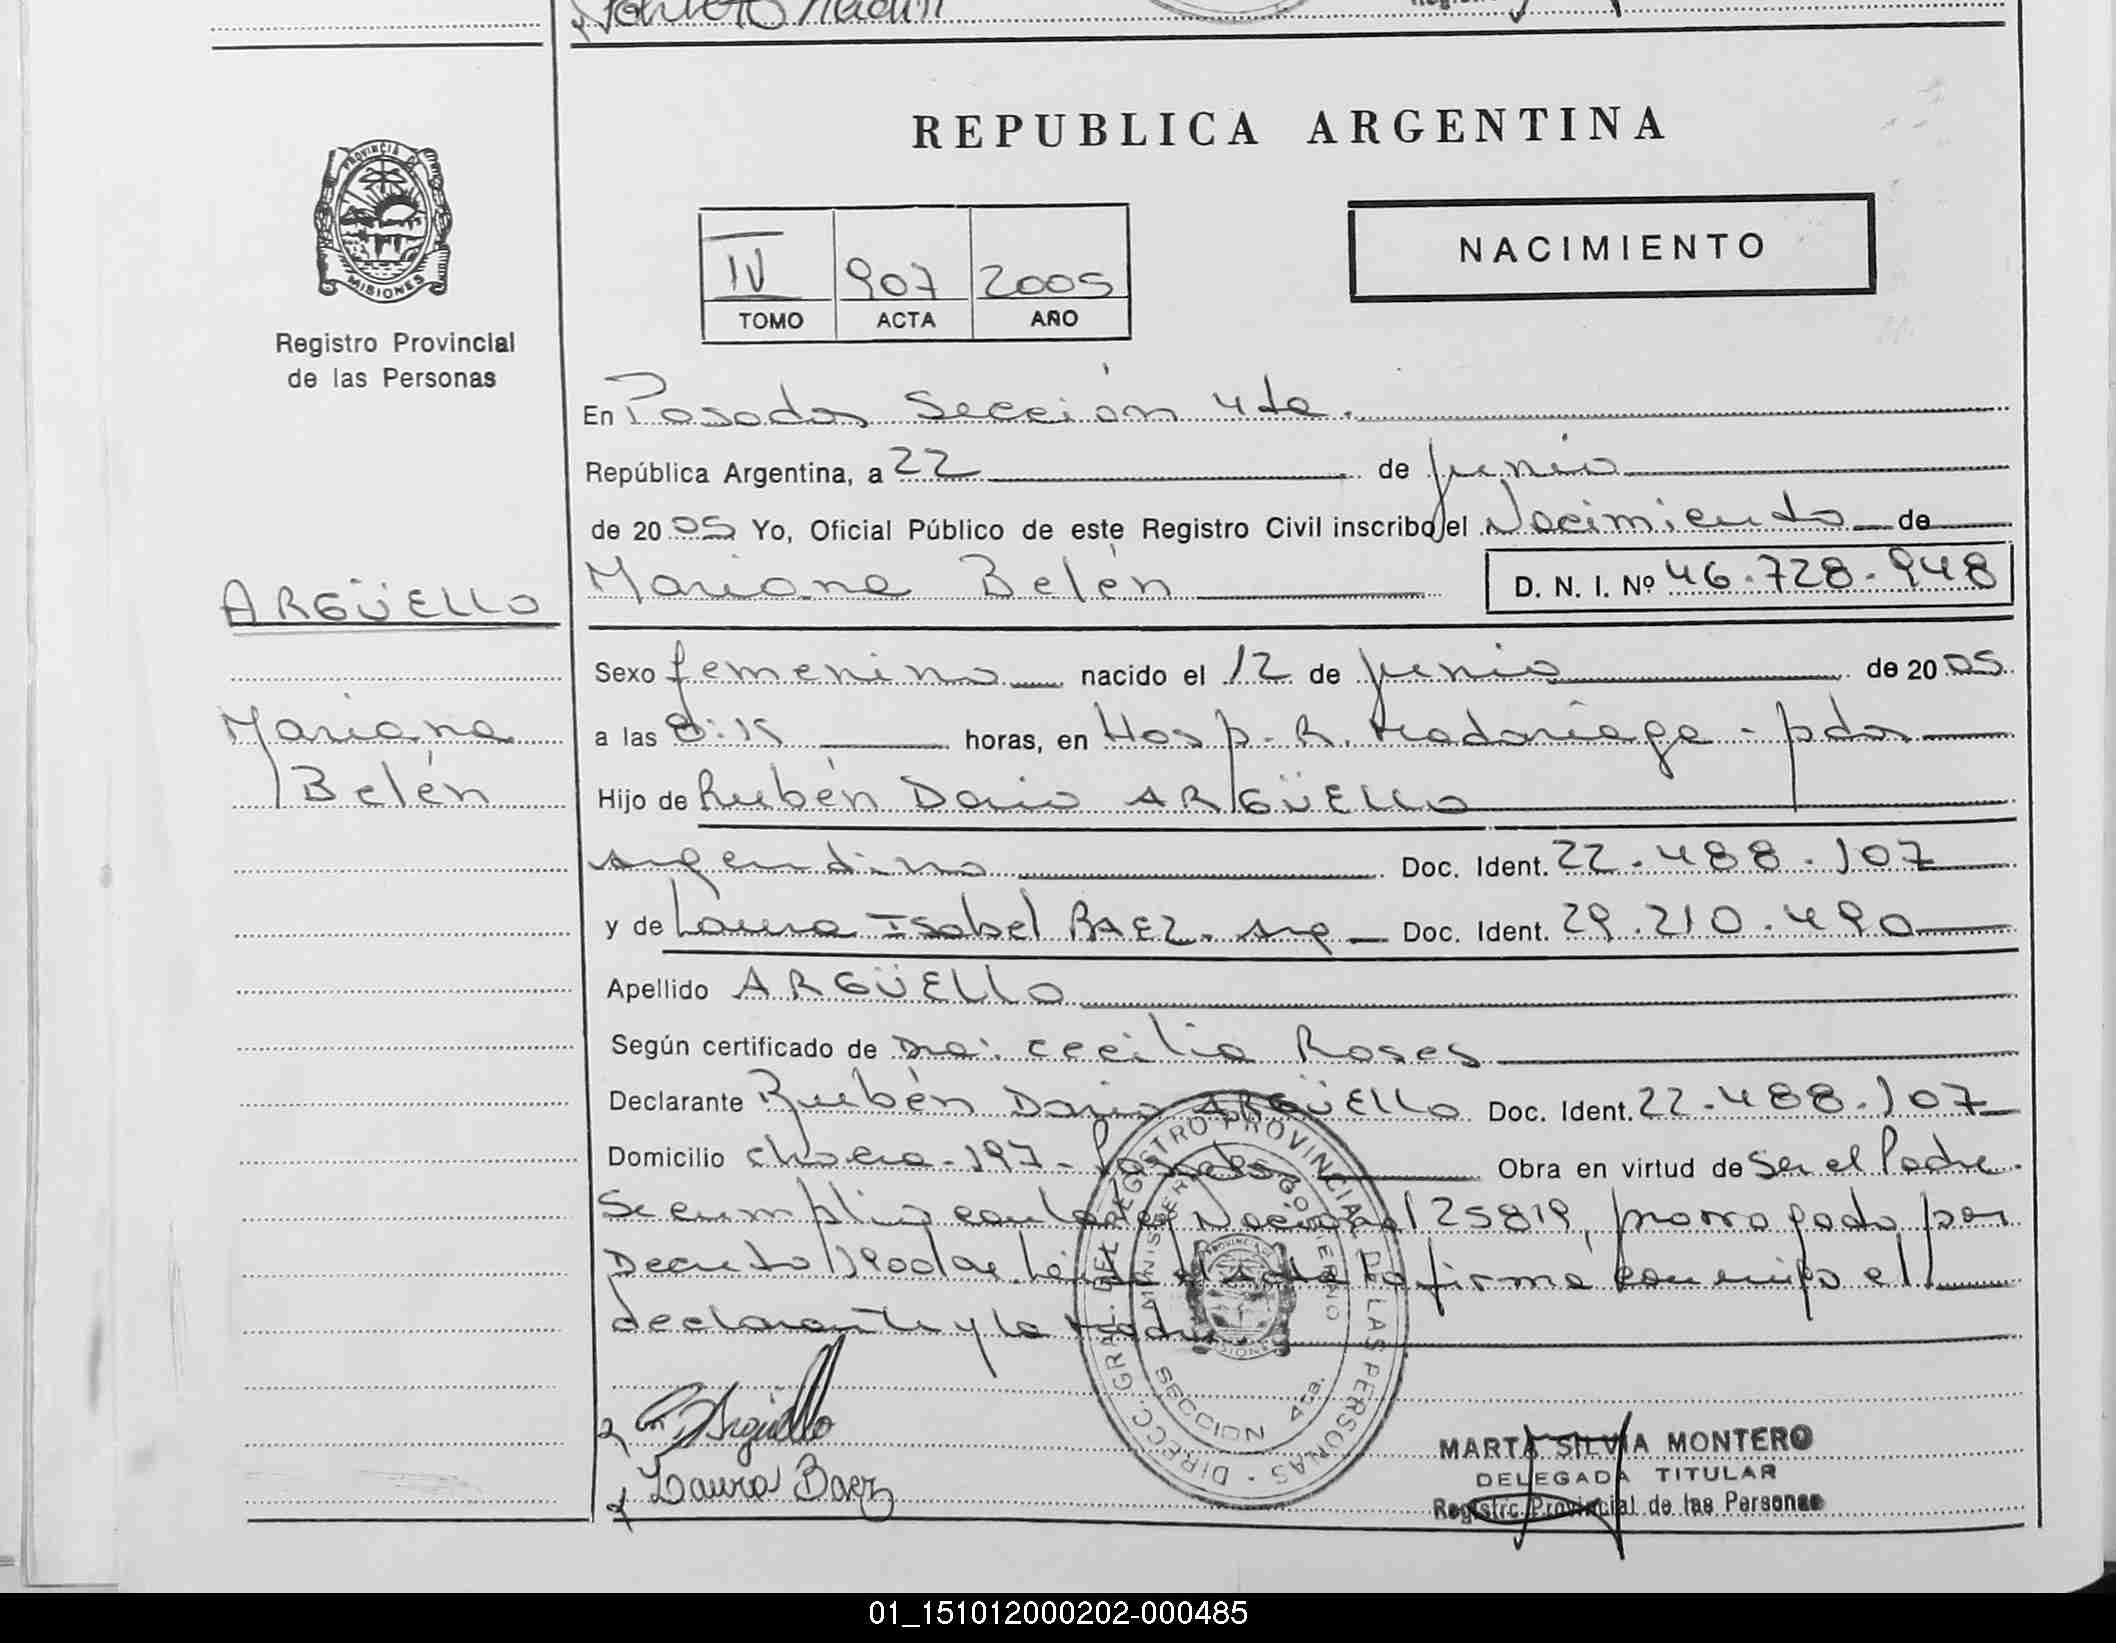 REPUBLICA ARGENTINA
PROVINCIA DE
MISIONES
Registro Provincial
de las Personas
NACIMIENTO
IV 907 2005
TOMO ACTA AÑO
En Posadas Sección 4ta.
República Argentina, a 22 de junio
de 2005 Yo, Oficial Público de este Registro Civil inscribo el Nacimiento de
ARGÜELLO
Mariana Belén D. N. I. Nº 46.728.948
Sexo femenino nacido el 12 de junio de 2005
Mariana
Belén
a las 8:15 horas, en Hosp. R. Madariaga - pdas
Hijo de Rubén Dario ARGÜELLO
argentino Doc. Ident. 22.488.107
y de Laura Isabel BAEZ. arg Doc. Ident. 29.210.490
Apellido ARGÜELLO
Según certificado de Dra. Cecilia Roses
Declarante Rubén Dario ARGÜELLO Doc. Ident. 22.488.107
Domicilio 197 - Posadas Obra en virtud de Ser el Padre.
Se cumplio con la Ley Nacional 25819, prorrogado por
Decreto Leída el acta la firma conmigo el
declarante y la Madre
DIRECC. GRAL. DEL REGISTRO PROVINCIAL DE LAS PERSONAS
MINISTERIO GOBIERNO
SECCION 4ta.
Argüello
Laura Baez
MARTA SILVIA MONTERO
DELEGADA TITULAR
Registro Provincial de las Personas
01_151012000202-000485